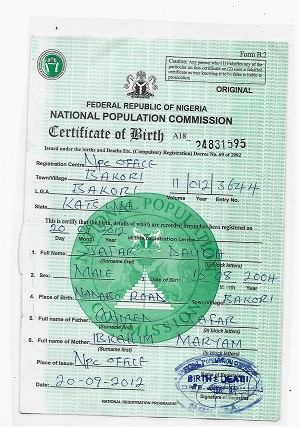 Form B.2
Caution: Any person who (1) Falsifies any of the particulars on this certificate or (2) uses a falsified certificate as true knowing it to be false is liable to prosecution
ORIGINAL
FEDERAL REPUBLIC OF NIGERIA
NATIONAL POPULATION COMMISSION
Certificate of Birth A18 24831595
Issued under the births and Deaths Etc. (Compulsory Registration) Decree No. 69 of 1992
Registration Centre NPC OFFICE
Town/Village BAKORI 11 012
L.G.A BAKORI Volume Year Entry No.
State KATSINA
This is certify that the birth, details of which are recorded herein has been registered on
20 2012
Day Month Year at this registration centre
1. Full Name: JAFAR DAUDA
(Surname first) (in block letters)
2. Sex: MALE 2004
4. Place of Birth: ROAD BAKORI
5. Full name of Father: AHMED JAFAR
(Surname first) (in block letters)
6. Full name of Mother: IBRAHIM MARYAM
(Surname first) (in block letters)
Place of Issue: NPC OFFICE
BIRTH & DEATH
Signature of Registrar
Date: 20-09-2012
NATIONAL REGISTRATION PROGRAMME